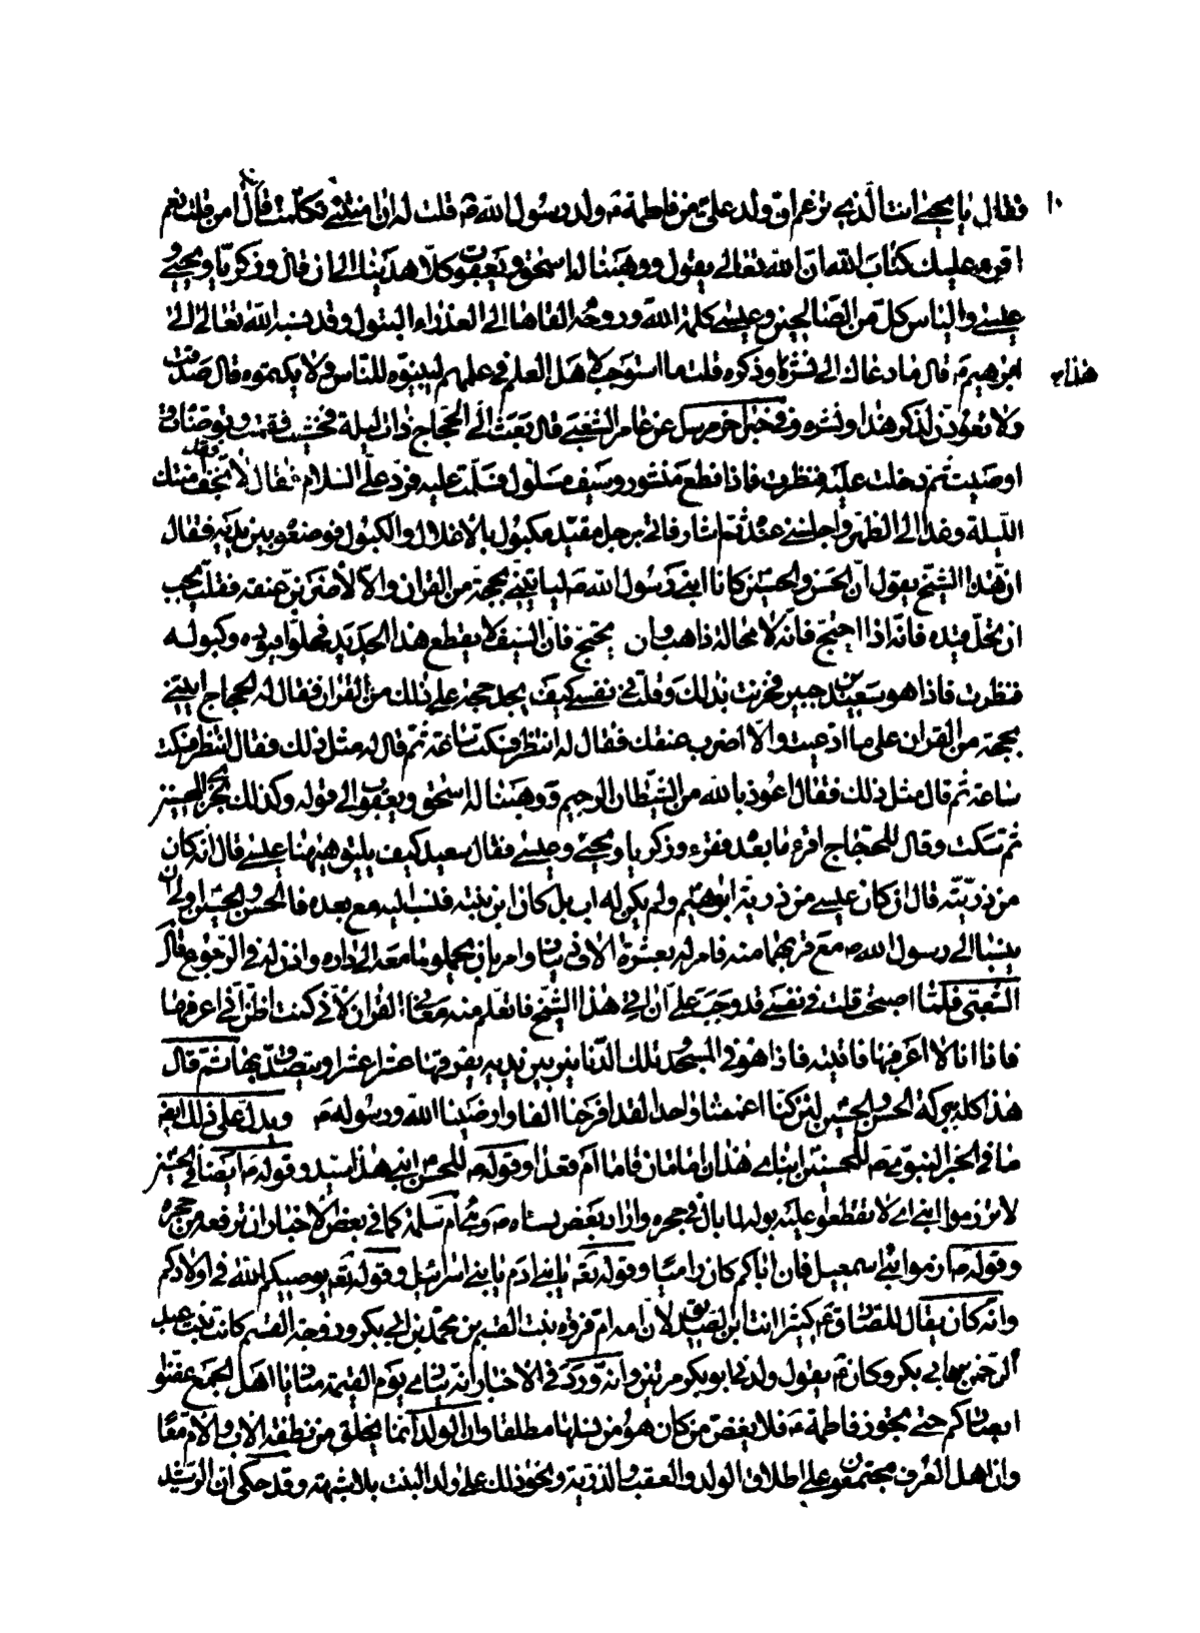 فقال يا يحيى انت الّذى تزعم انّ ولد علىّ من فاطمة ع ولد رسول الله ص قلت له ان امنتنى تكلّمت قال امن قلت نعم
اقرء عليك كتاب الله انّ الله تعالى يقول ووهبنا له اسحق ويعقوب كلّا هدينا الى ان قال وزكريّا ويحيى و
عيسى والياس كلّ من الصّالحين وعيسى كلمة الله وروحه القاها الى العذراء البتول وقد نسبه الله تعالى الى
ابرهيم ع قال ما دعاك الى نشر هذا وذكره قلت ما استوجب لاهل العلم فى علمهم ليبيّنوه للنّاس ولا يكتموه قال صدقت
ولا تعودنّ لذكر هذا ونشره وفى خبر اخر مرسل عن عامر الشّعبى قال بعث الىّ الحجّاج ذات ليلة فخشيت فقمت وتوضّأت و
اوصيت ثم دخلت عليه فنظرت فاذا نطع منشور وسيف مسلول فسلّمت عليه فردّ علىّ السلام فقال لا تخف فقد امنتك
اللّيلة وغدا الى الظهر واجلسنى عنده ثم اشار فاتى برجل مقيّد مكبول بالاغلال والكبول فوضعوه بين يديه فقال
ان هذا الشيخ يقول انّ الحسن والحسين كانا ابنى رسول الله ص لياتينّى بحجّة من القران والّا لاضربنّ عنقه فقلت يجب
ان تحلّ قيده فانّه اذا احتجّ فانّه لا محالة ذاهب وان لم يحتجّ فانّ السّيف لا يقطع هذا الحديد فحلّوا قيوده وكبوله
فنظرت فاذا هو سعيد بن جبير فحزنت بذلك وقلت فى نفسى كيف يجد حجّة على ذلك من القران فقال له الحجاج ايتنى
بحجّة من القران على ما ادّعيت والّا اضرب عنقك فقال له انتظر فسكت ساعة ثم قال له مثل ذلك فقال انتظر فسكت
ساعة ثم قال مثل ذلك فقال اعوذ بالله من الشّيطان الرجيم ووهبنا له اسحق ويعقوب الى قوله وكذلك نجزى المحسنين
ثم سكت وقال للحجّاج اقرء ما بعده فقرء وزكريا ويحيى وعيسى فقال سعيد كيف يليق هيهنا عيسى قال انّه كان
من ذرّيّته قال ان كان عيسى من ذريّة ابرهيم ولم يكن له اب بل كان ابن بنته فنسب اليه مع بعده فالحسن والحسين اولى ان
ينسبا الى رسول الله ص مع قربهما منه فامر له بعشرة الاف دينار وامر بان يحملوها معه الى داره واذن له فى الرجوع قال
الشّعبى فلمّا اصبحت قلت فى نفسى قد وجب علىّ ان اتى هذا الشّيخ فاتعلّم منه معانى القران لانّى كنت اظنّ انّى اعرفها
فاذا انا لا اعرفها فاتيته فاذا هو فى المسجد وتلك الدّنانير بين يديه يفرّقها عشرا عشرا ويتصدّق بها ثم قال
هذا كله ببركة الحسن والحسين لئن كنّا اغممنا واحدا لقد افرحنا الفا وارضينا الله ورسوله ص ويدلّ على ذلك ايضا
ما فى الخبر النبوى ص للحسنين ابناى هذان امامان قاما ام قعدا وقوله ص للحسن ابنى هذا سيّد وقوله ص ايضا فى الحسين
لا تزرموا ابنى اى لا تقطعوا عليه بوله لما بال فى حجره واراد بعض نسائه ص وهى امّ سلمة كما فى بعض الاخبار ان ترفعه من حجره
وقوله ص ارموا بنى اسمعيل فان اباكم كان راميا وقوله تعم يا بنى ادم يا بنى اسرائيل وقوله تعم يوصيكم الله فى اولادكم
وانّه كان يقال للصّادق ع كثيرا انت ابن الصديق لانّ امه امّ فروة بنت القسم بن محمّد بن ابى بكر وزوجة القسم كانت بنت عبد
الرّحمن بن ابى بكر وكان ع يقول ولدنى ابو بكر مرتين وانّه ورد فى الاخبار انه ينادى يوم القيمة مناديا اهل الجمع غضّوا
ابصاركم حتى تجوز فاطمة ع فلا يغضّ من كان هو من نسلها مطلقا وان الولد انّما يخلق من نطفة الاب والامّ معًا
وان اهل العرف مجتمعون على اطلاق الولد والعقب والذرّية ونحو ذلك على ولد البنت بلا شبهة وقد حكى ان الرّشيد